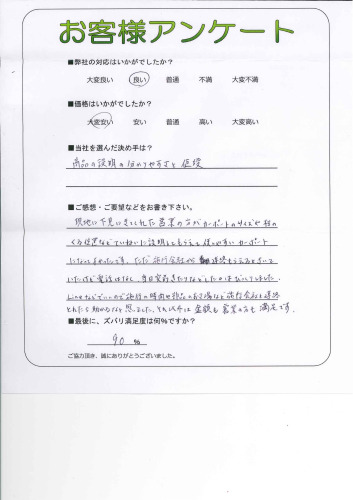 お客様アンケート
■弊社の対応はいかがでしたか？
大変良い 良い 普通 不満 大変不満
■価格はいかがでしたか？
大変安い 安い 普通 高い 大変高い
■当社を選んだ決め手は？
商品の説明の分かりやすさと値段
■ご感想・ご要望などをお書き下さい。
現地に下見にきてくれた営業の方がカーポートのサイズや柱の
くる位置などていねいに説明してもらえて使いやすいカーポート
になってよかったです。ただ施行会社から連絡もらえるときいて
いたけど電話はなく、当日変更だったりなどしたのはびっくりしました。
Lineなどでいいので施行の時間や
とれたら助かるなと思いました。それ以外は金額も営業の方も満足です。
■最後に、ズバリ満足度は何％ですか？
90 %
ご協力頂き、誠にありがとうございました。